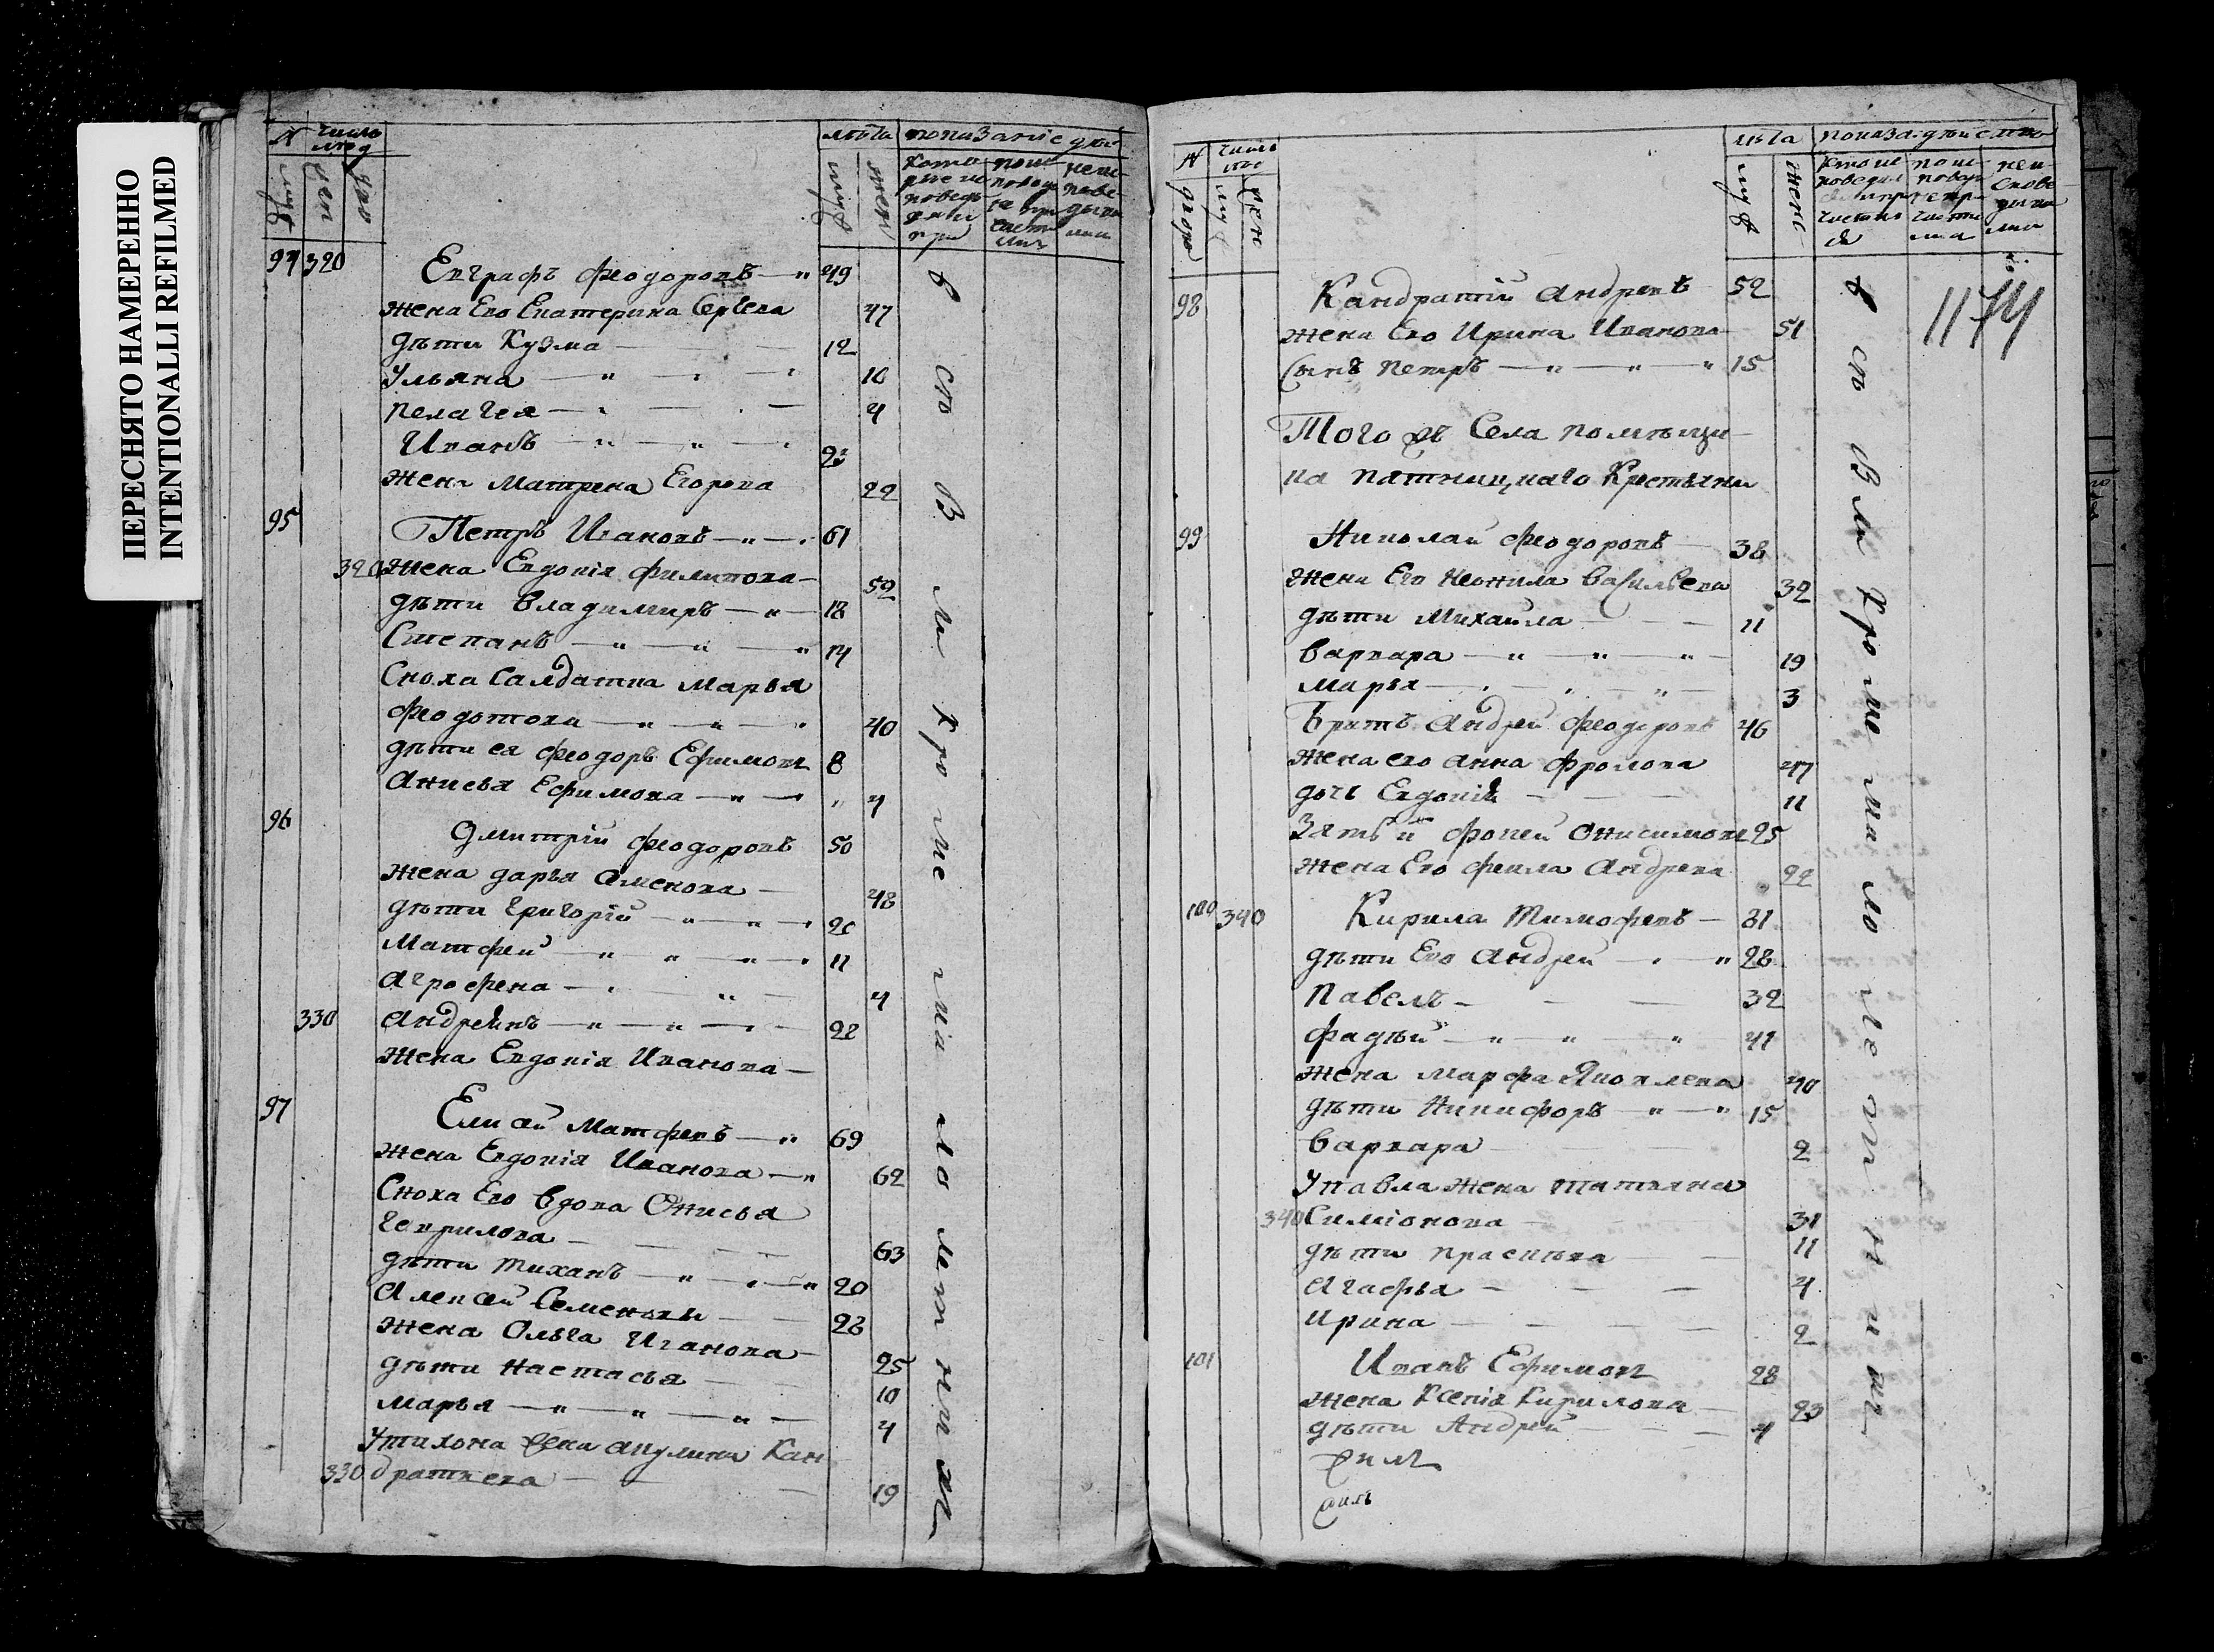 ПЕРЕСНЯТО НАМЕРЕННО
INTENTIONALLI REFILMED
N число люд
лѣта показание дѣй
муж жен
94 320 Евграфъ Феодоровъ 49
жена Его Екатерина Сергева 47
дѣти Кузма 12
Ульяна 10
Пелагея 4
Иванъ 23
жена Матрена Егорова 22
95 Петръ Ивановъ 61
320 жена Евдокія Филипова 52
дѣти Владимиръ 18
Степанъ 14
Сноха Салдатка Марья
Феодотова 40
дѣти ея Феодоръ Ефимовъ 8
Анисья Ефимова 4
96 Дмитрій Феодоровъ 50
жена Дарья Аменова 48
дѣти Григорій 20
Матфей 11
Агрофена 4
330 Андреянъ 22
жена Евдокія Иванова
97 Елисй Матфевъ 69
жена Евдокія Иванова 62
Сноха Его вдова Онисья
Геврилова 63
дѣти Тиханъ 20
Алексей Семеновы 28
жена Ольга Иванова 25
дѣти Настасья 10
Марья 4
У Тихона жена Акулина Кан
330 дратьева 19
в ст В ли кро ме ма ло лет ни хъ
N число
лѣта показа. дѣйство
двор муж жен
муж женс
1174
98 Кандратій Андревъ 52
жена Его Ирина Иванова 51
Сынъ Петръ 15
Того жъ Села помѣщи
ка Пятницкаго Крестьяни
99 Николай Феодоровъ 38
жена Его Неонила Васильева 32
дѣти Михайла 11
Варвара 19
Марья 3
Братъ Андрей Феодоровъ 46
жена его Анна Фролова 47
дочь Евдокія 11
Зять й Фокей Онисимовъ 25
жена Его Фекла Андрева 22
100 340 Кирила Тимофевъ 81
дѣти Его Андрей 28
Павелъ 32
Фадѣй 41
жена Марфа Яковлева 40
дѣти Никифоръ 15
Варвара 2
У Павла жена Татьяна
340 Симіонова 31
дѣти Прасковья 11
Агафья 4
Ирина 2
101 Иванъ Ефимовъ 28
жена Ксенія Кирилова 23
дѣти Андрей 4
в ст В ли кро ме ма ло ле т н и хъ